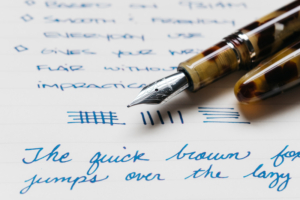 BASED ON
SMOOTH
EVERYDAY USE
GIVES YOUR
FLAIR WITHOUT
IMPRACTICA
The quick brown fox
jumps over the lazy